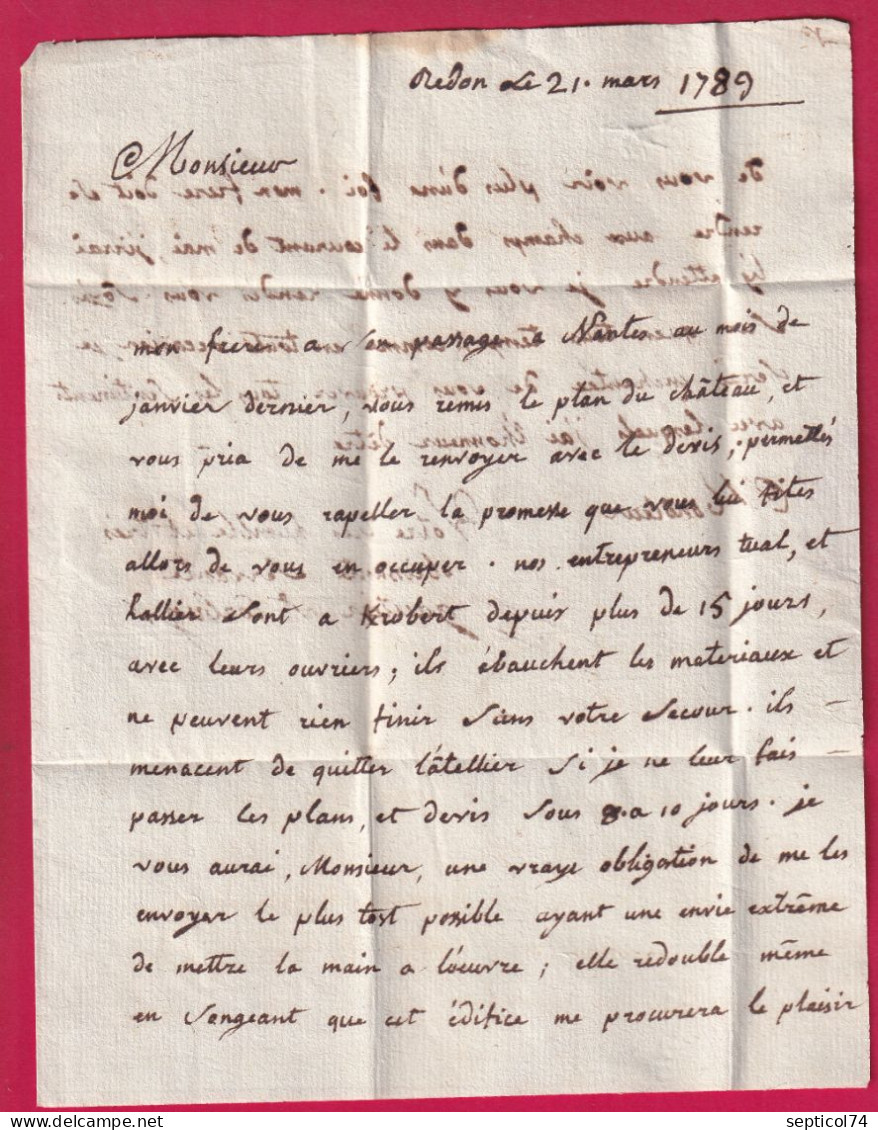 Redon Le 21. mars 1789
Monsieur
mon frere a son passage a Nantes au mois de
janvier dernier, vous remis le plan du château, et
vous pria de me le renvoyer avec le devis; permettés
moi de vous rapeller la promesse que vous lui fites
allors de vous en occuper. nos entrepreneurs tual, et
hallier sont a Krobert depuis plus de 15 jours,
avec leurs ouvriers; ils ébauchent les materiaux et
ne peuvent rien finir sans votre secour. ils
menacent de quitter l'atellier si je ne leur fais
passer les plans, et devis sous 8. a 10 jours. je
vous aurai, Monsieur, une vraye obligation de me les
envoyer le plus tost possible ayant une envie extrême
de mettre la main a l'oeuvre; elle redouble même
en songeant que cet édifice me procurera le plaisir
septicol74